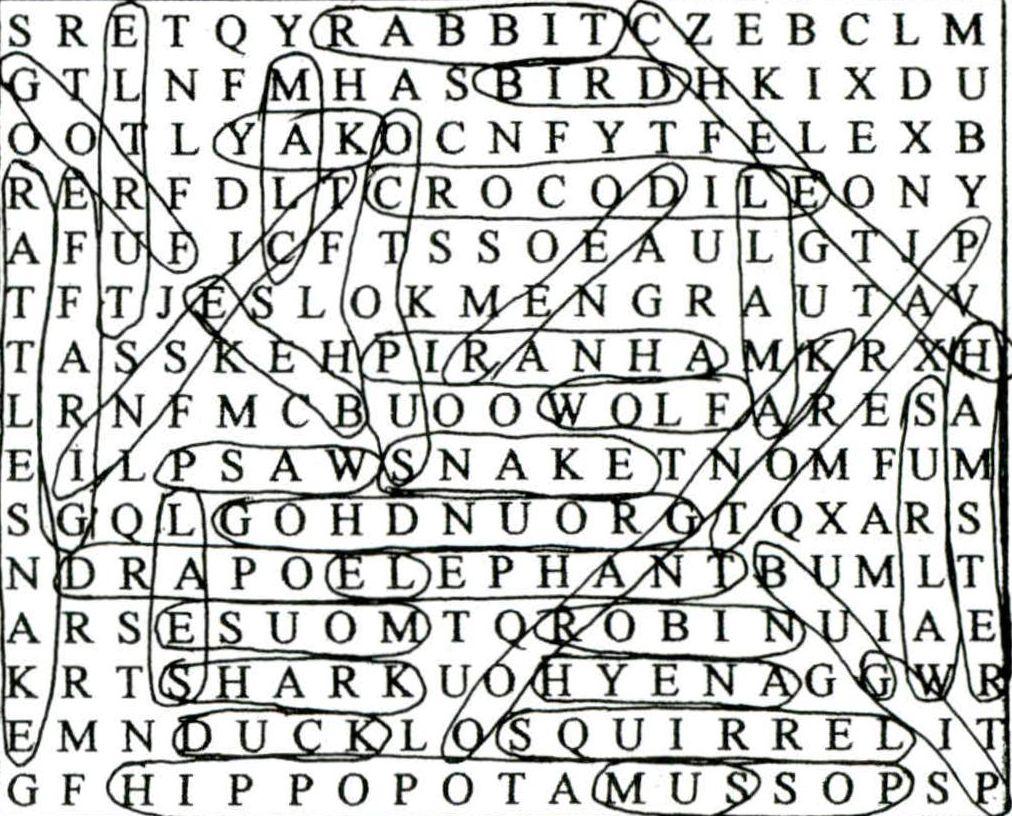 S R E T Q Y R A B B I T C Z E B C L M
G T L N F M H A S B I R D H K I X D U
O O T L Y A K O C N F Y T F E L E X B
R E R F D L T C R O C O D I L E O N Y
A F U F I C F T S S O E A U L G T I P
T F T J E S L O K M E N G R A U T A V
T A S S K E H P I R A N H A M K R X H
L R N F M C B U O O W O L F A R E S A
E I L P S A W S N A K E T N O M F U M
S G Q L G O H D N U O R G T Q X A R S
N D R A P O E L E P H A N T B U M L T
A R S E S U O M T Q R O B I N U I A E
K R T S H A R K U O H Y E N A G G W R
E M N D U C K L O S Q U I R R E L I T
G F H I P P O P O T A M U S S O P S P